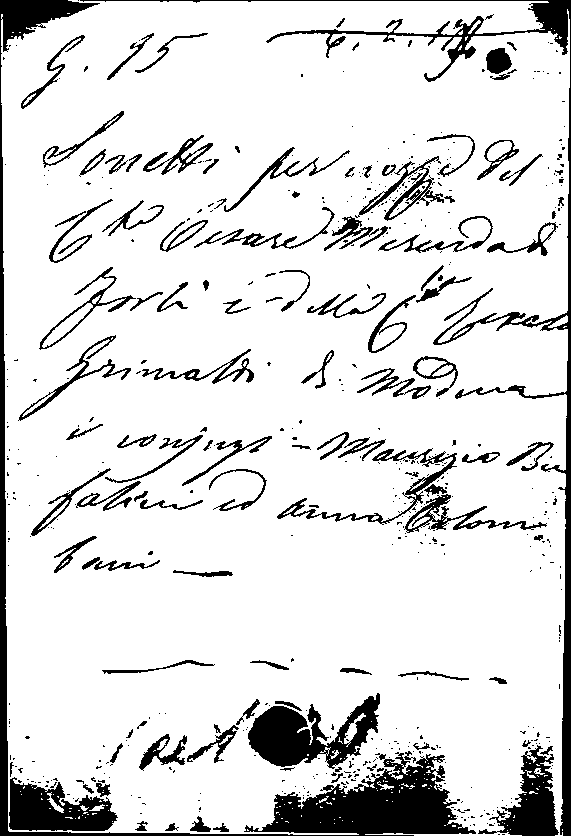 G. 95
6. 2.
Sonetti per nozze del
Cte Cesare Merenda di
Forlì e della Cssa
Grimaldi di Modena
i conjugi = Maurizio Bu
falini ed Anna Colom
bani —